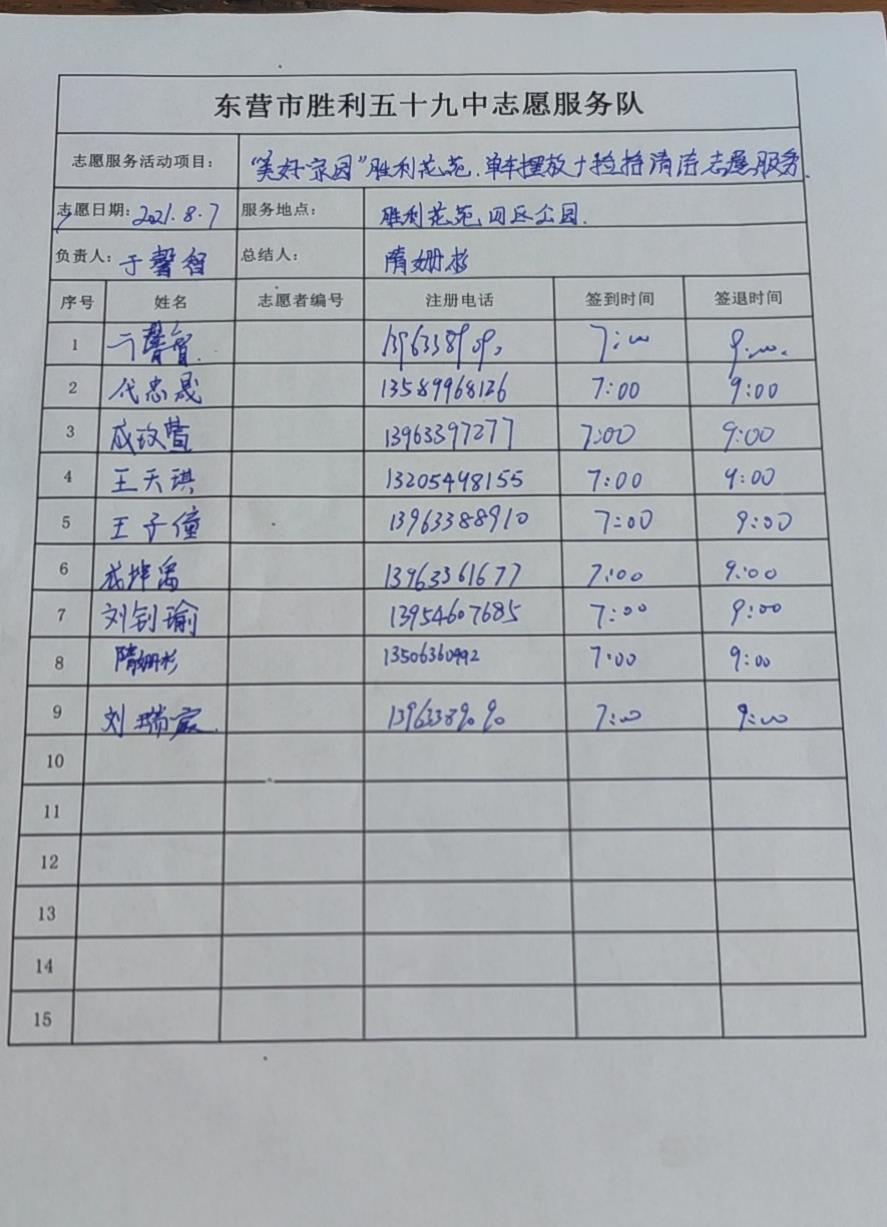 东营市胜利五十九中志愿服务队
志愿服务活动项目: "美好家园"胜利花苑.单车摆放+捡拾清洁志愿服务.
志愿日期: 2021.8.7 服务地点: 胜利花苑 四区公园.
负责人: 于馨智 总结人: 隋姗杉
序号 姓名 志愿者编号 注册电话 签到时间 签退时间
1 于馨智. 7:00 9:00.
2 代忠晟 13589968126 7:00 9:00
3 成玫萱 13963397277 7:00 9:00
4 王天琪 13205498155 7:00 9:00
5 王子僮 13963388910 7:00 9:00
6 禹 13963361677 7:00 9:00
7 刘钊瑜 13954607685 7:00 9:00
8 隋姗杉 13506360992 7:00 9:00
9 刘瑞宸. 7:00 9:00
10
11
12
13
14
15